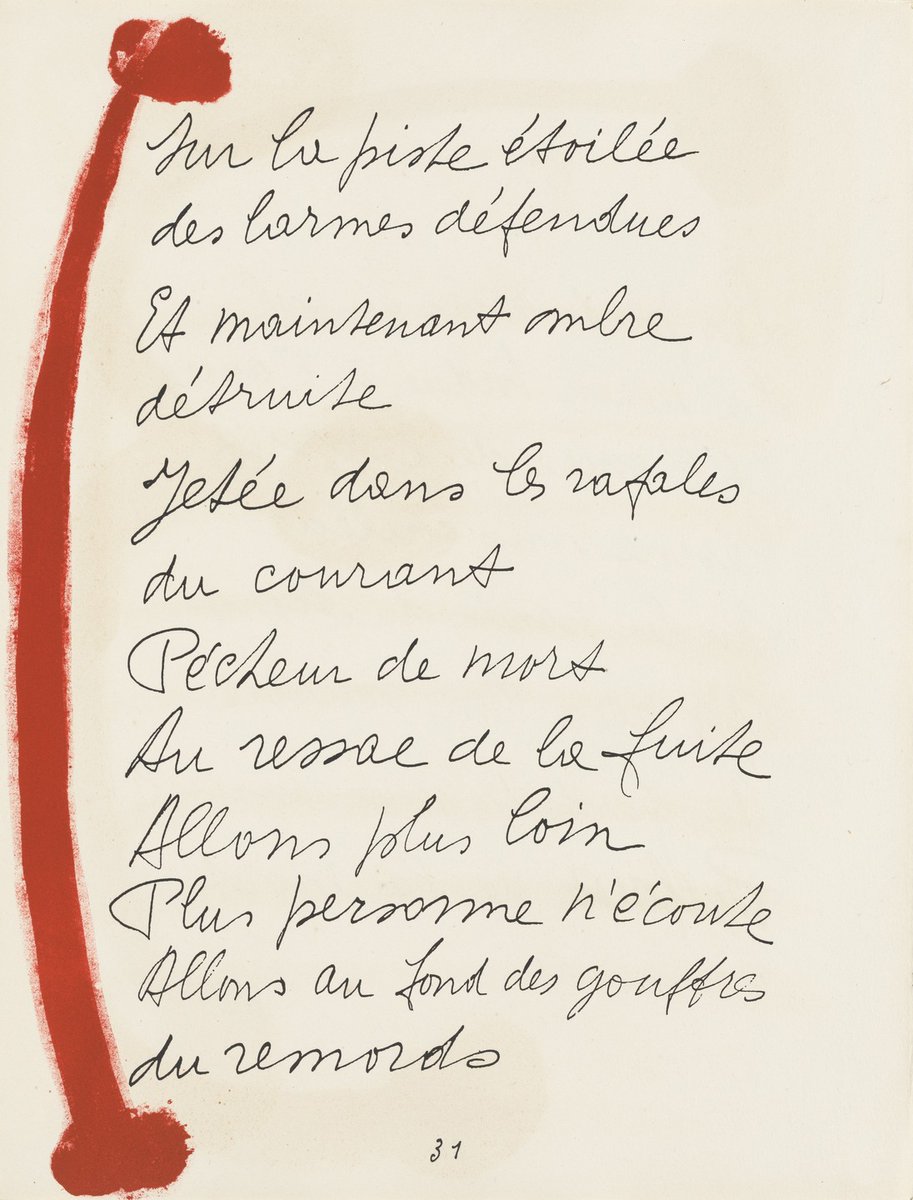 Sur la piste étoilée
des larmes défendues
Et maintenant ombre
détruite
Jetée dans les rafales
du courant
Pécheur de mort
Au ressac de la fuite
Allons plus loin
Plus personne n'écoute
Allons au fond des gouffres
du remords
31